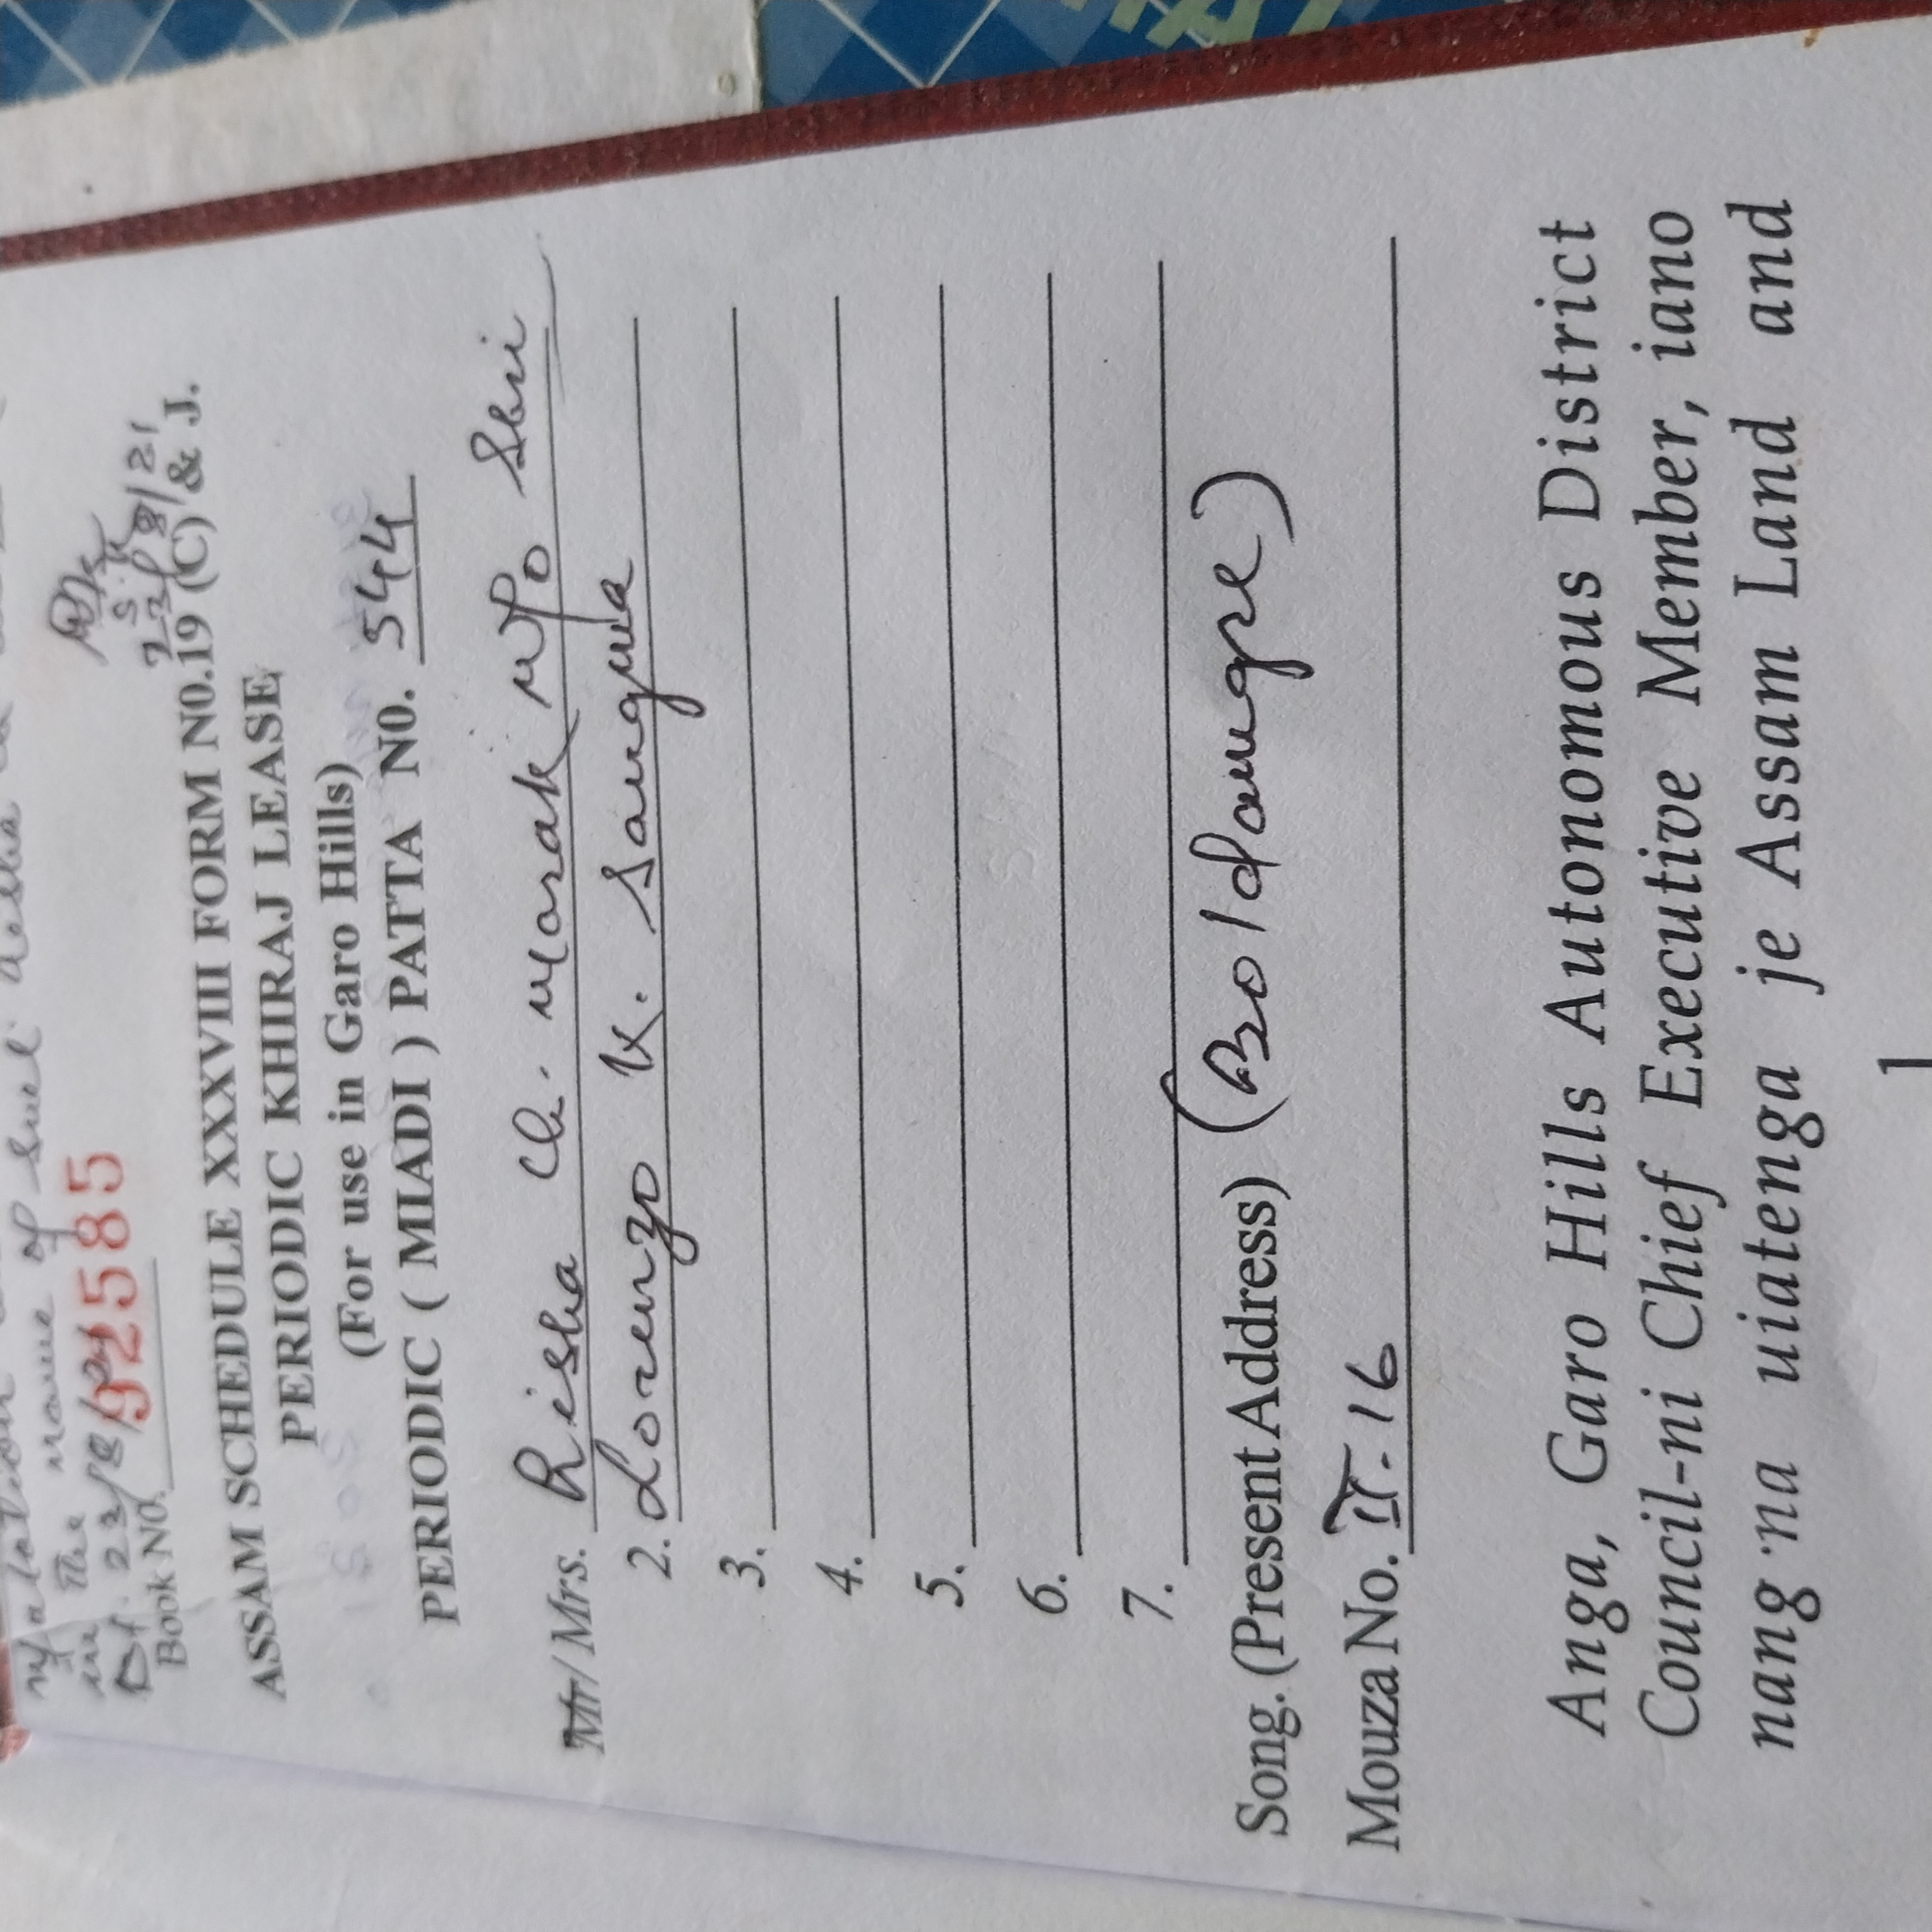 mutation
in the name of
Dt. 23/8/21
925585
Book N0.
22/8/21
ASSAM SCHEDULE XXXVIII FORM N0.19 (C) & J.
PERIODIC KHIRAJ LEASE
(For use in Garo Hills)
PERIODIC ( MIADI ) PATTA N0. 544
Mr/Mrs. Risha Ch. Marak W/o Shri
2. Lorenzo K. Sangma
3.
4.
5.
6.
7.
Song. (Present Address) (Boldamgre)
Mouza No. II-16
Anga, Garo Hills Autonomous District
Council-ni Chief Executive Member, iano
nang'na uiatenga je Assam Land and
1